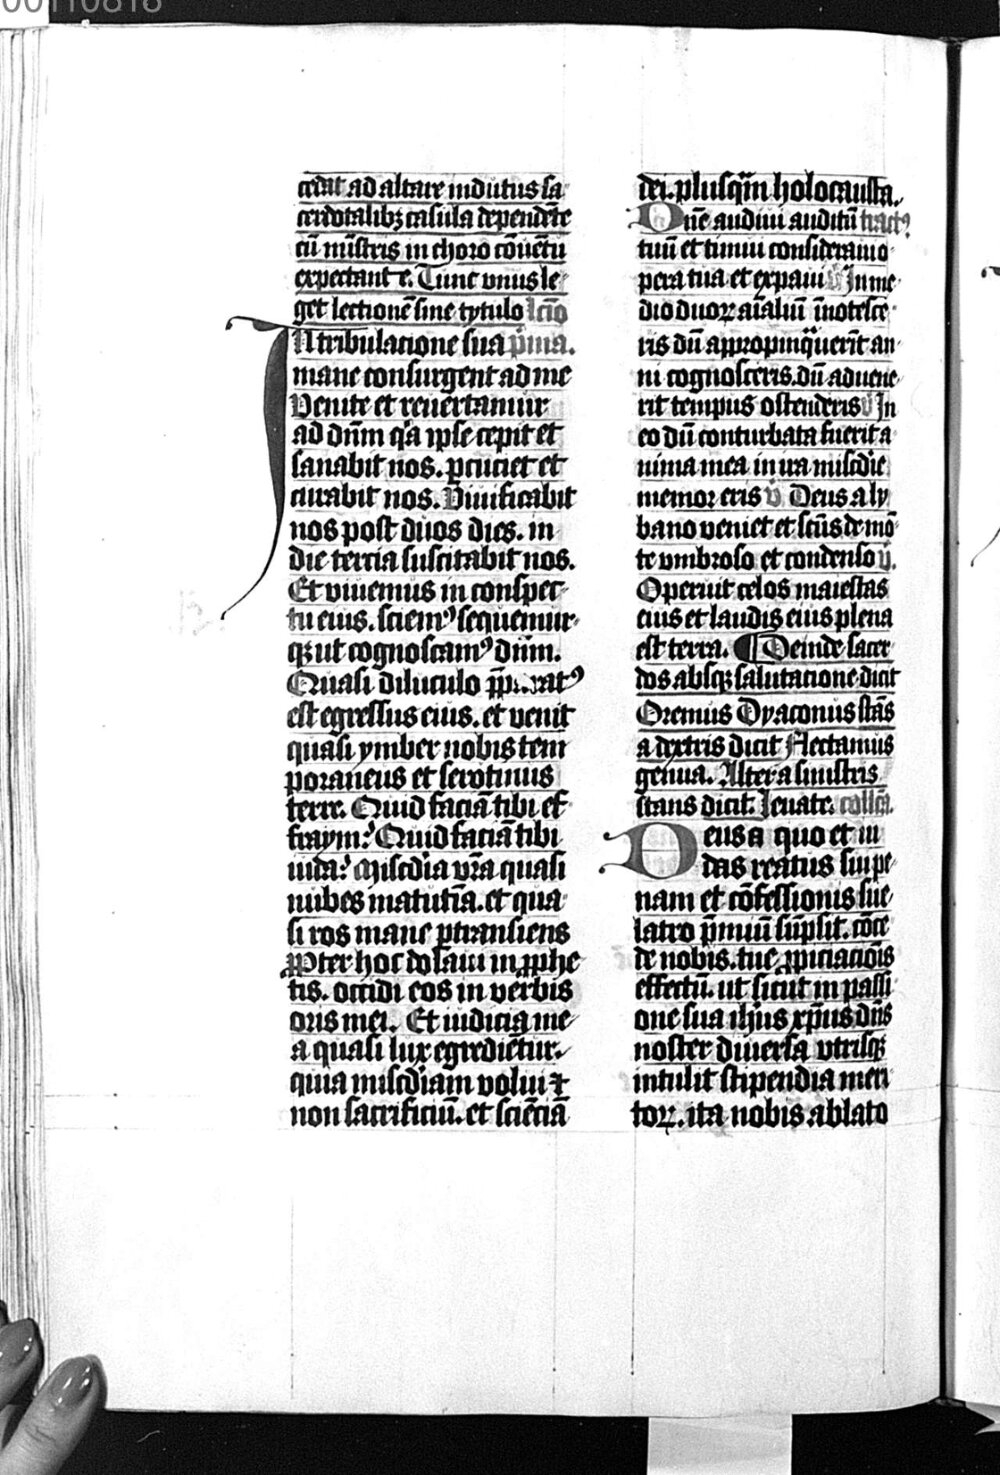 00110818
cedat ad altare indutus sa
cerdotalibꝫ casula dependēte
cū mīstris in choro cōuētū
expectante. Tunc unus le
get lectionē sine tytulo lcīo
IN tribulacione sua p̄ma.
mane consurgent ad me
Venite et reuertamur
ad dn̄m qͥa ipse cepit et
sanabit nos. ꝑcuciet et
curabit nos. Viuificabit
nos post duos dies. in
die tercia suscitabit nos.
Et viuemus in conspec
tu eius. sciemꝰ sequemur
qꝫ ut cognoscamꝰ dn̄m.
Quasi diluculo p̄paratꝰ
est egressus eius. et venit
quasi ymber nobis tem
poraneus et serotinus
terre. Quid faciā tibi ef
fraym? Quid faciā tibi
iuda? Misc̄dia vr̄a quasi
nubes matutīa. et qua
si ros mane ꝑtransiens
Propter hoc dolaui in ꝓphe
tis. occidi eos in verbis
oris mei. Et iudicia me
a quasi lux egrediētur.
quia misc̄diam volui ⁊
non sacrificiū. et sciēciā
dei. plusqᷓm holocausta.
Dn̄e audiui auditū tractꝰ
tuū et timui consideraui o
pera tua et expaui v̄ In me
dio duoꝝ aīaliū īnotesce
ris dū appropinq̈uerīt an
ni cognosceris. dū aduene
rit tempus ostenderis v̄ In
eo dū conturbata fuerit a
nima mea in ira misc̄die
memor eris v̄ Deus a ly
bano veniet et scūs de mō
te vmbroso et condenso v̄.
Operuit celos maiestas
eius et laudis eius plena
est terra. ¶ Deinde sacer
dos absqꝫ salutacione dicit
Oremus Dyaconus stās
a dextris dicit Flectamus
genua. Alter a sinistris
stans dicit. Leuate. collc̄a.
Deus a quo et iu
das reatus sui pe
nam et cōfessionis sue
latro p̄miū sūpsit. cōce
de nobis. tue ꝓpiciacōis
effectū. ut sicut in passi
one sua ihūs xp̄us dn̄s
noster diuersa utrisqꝫ
intulit stipendia meri
toꝝ. ita nobis ablato